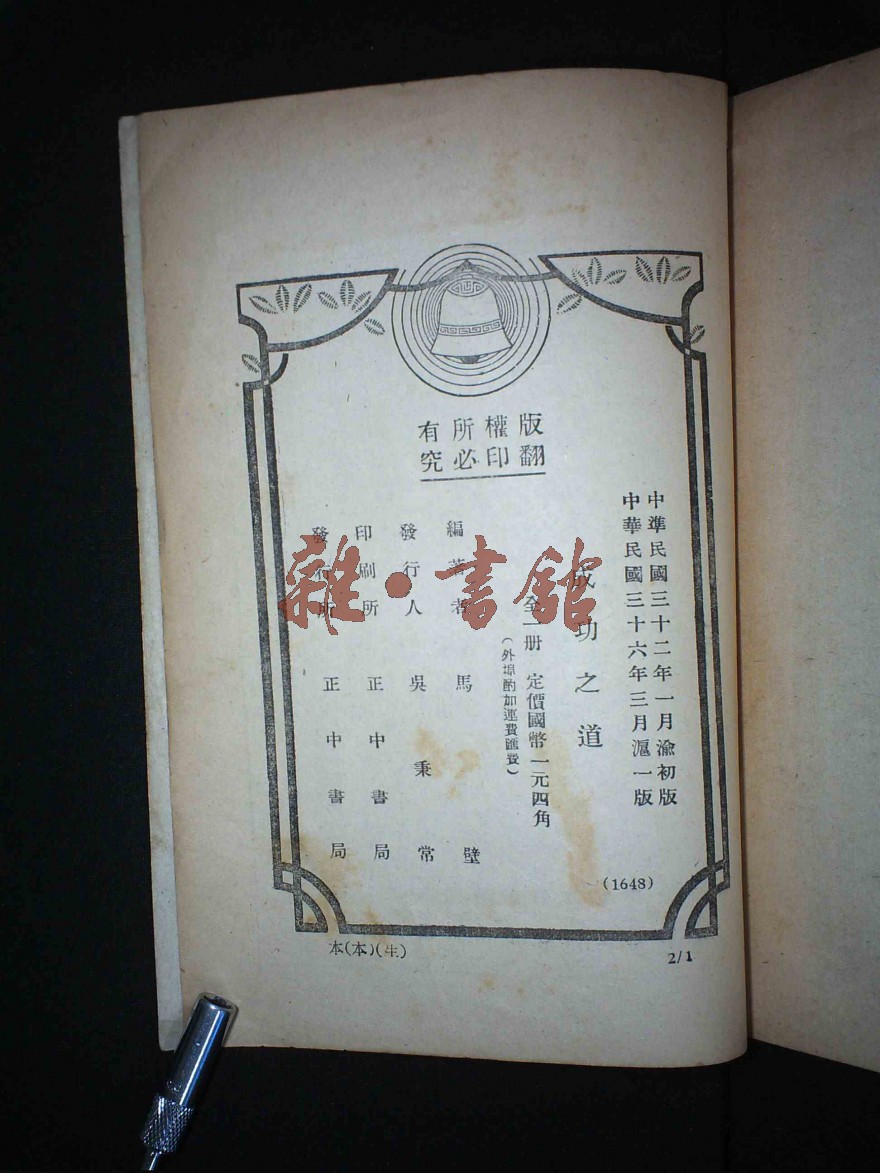 版權所有
翻印必究
中準民國三十二年一月渝初版
中華民國三十六年三月滬一版
成功之道
全一册 定價國幣一元四角
(外埠酌加運費匯費)
編著者 馬壁
發行人 吳秉常
印刷所 正中書局
發行所 正中書局
(1648)
本(本)(生)
2/1
雜·書館